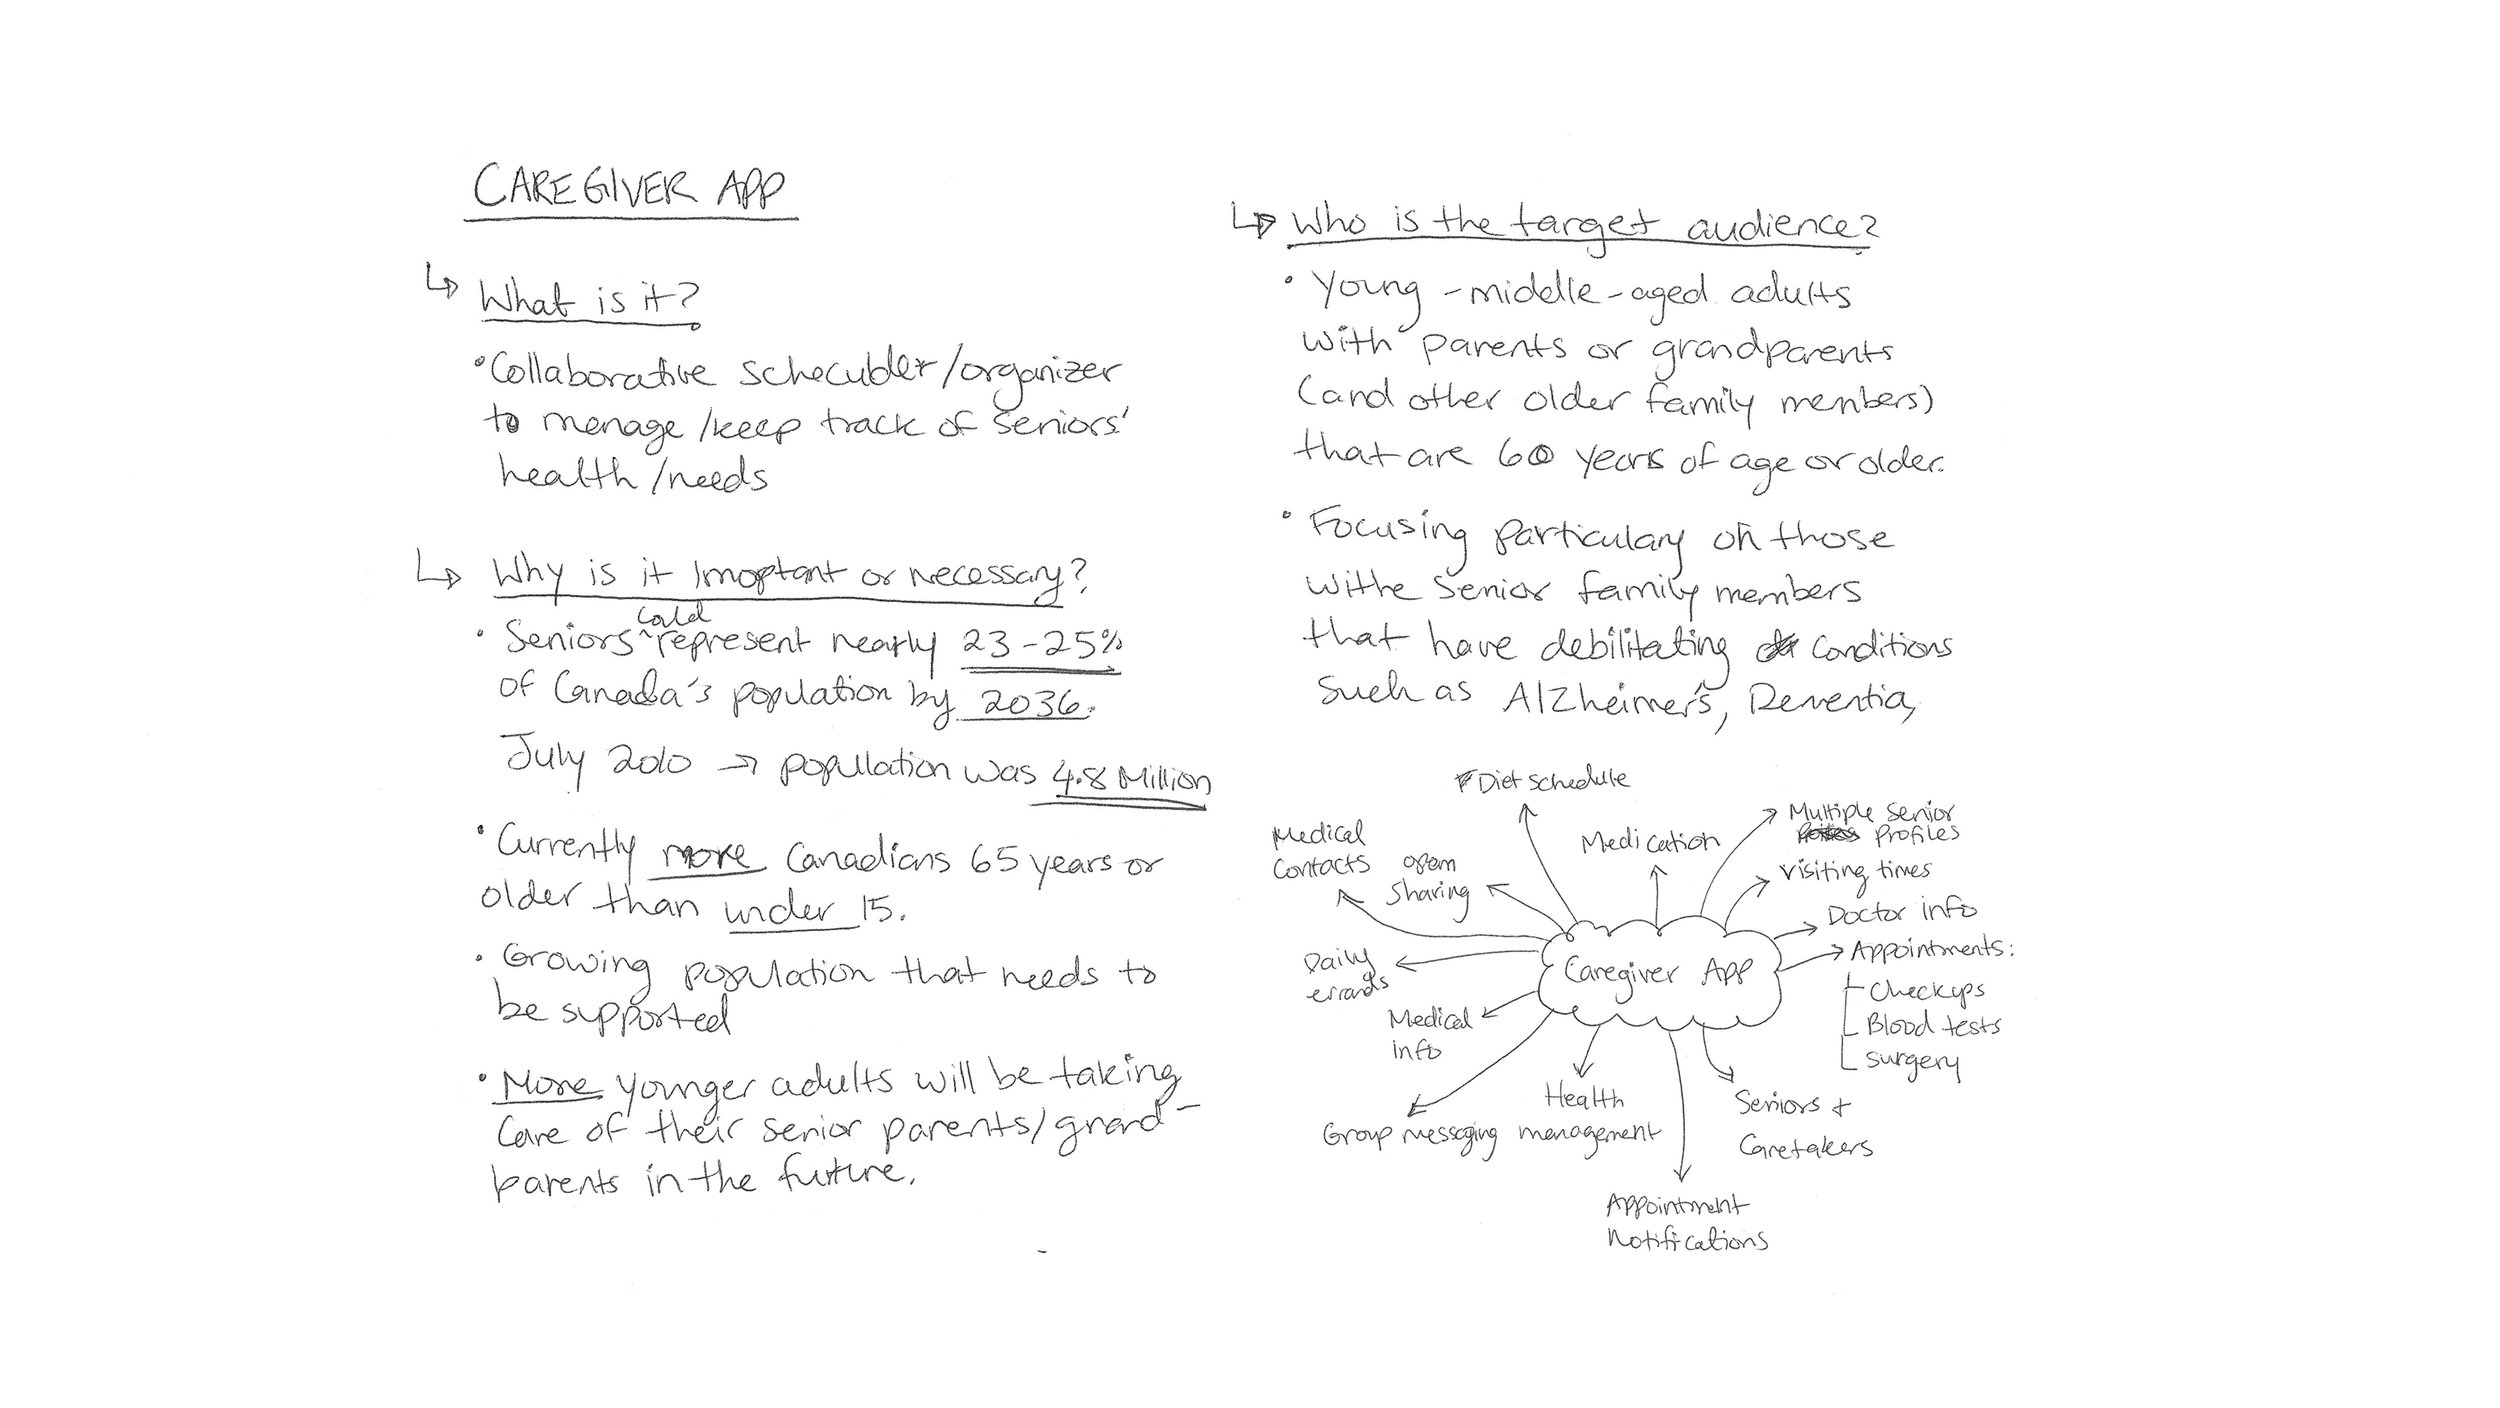 CAREGIVER APP
What is it?
• Collaborative schecubler/organizer
to manage/keep track of seniors'
health/needs
Why is it Imoptant or necessary?
could
• Seniors ^ represent nearly 23-25%
of Canada's population by 2036.
July 2010 → population was 4.8 Million
• Currently more Canadians 65 years or
older than under 15.
• Growing population that needs to
be supported
• More younger adults will be taking
care of their senior parents/grand-
parents in the future.
Who is the target audience?
• Young-middle-aged adults
with parents or grandparents
(and other older family members)
that are 60 years of age or older.
• Focusing particulary on those
withe senior family members
that have debilitating conditions
such as Alzheimer's, Dementia,
Diet schedule
Medical
Contacts
open
sharing
Medication
Multiple senior
profiles
Visiting times
Doctor info
Appointments:
Checkups
Blood tests
surgery
Caregiver App
Daily
errands
Medical
info
Group messaging
Health
management
Seniors +
Caretakers
Appointment
Notifications